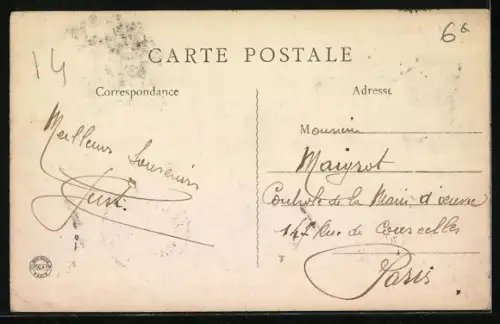 14
6€
CARTE POSTALE
Correspondance
Adresse
Meilleurs Souvenirs
Monsieur
Maigrot
Controle de la Main d'œuvre
147 Rue de Courcelles
Paris